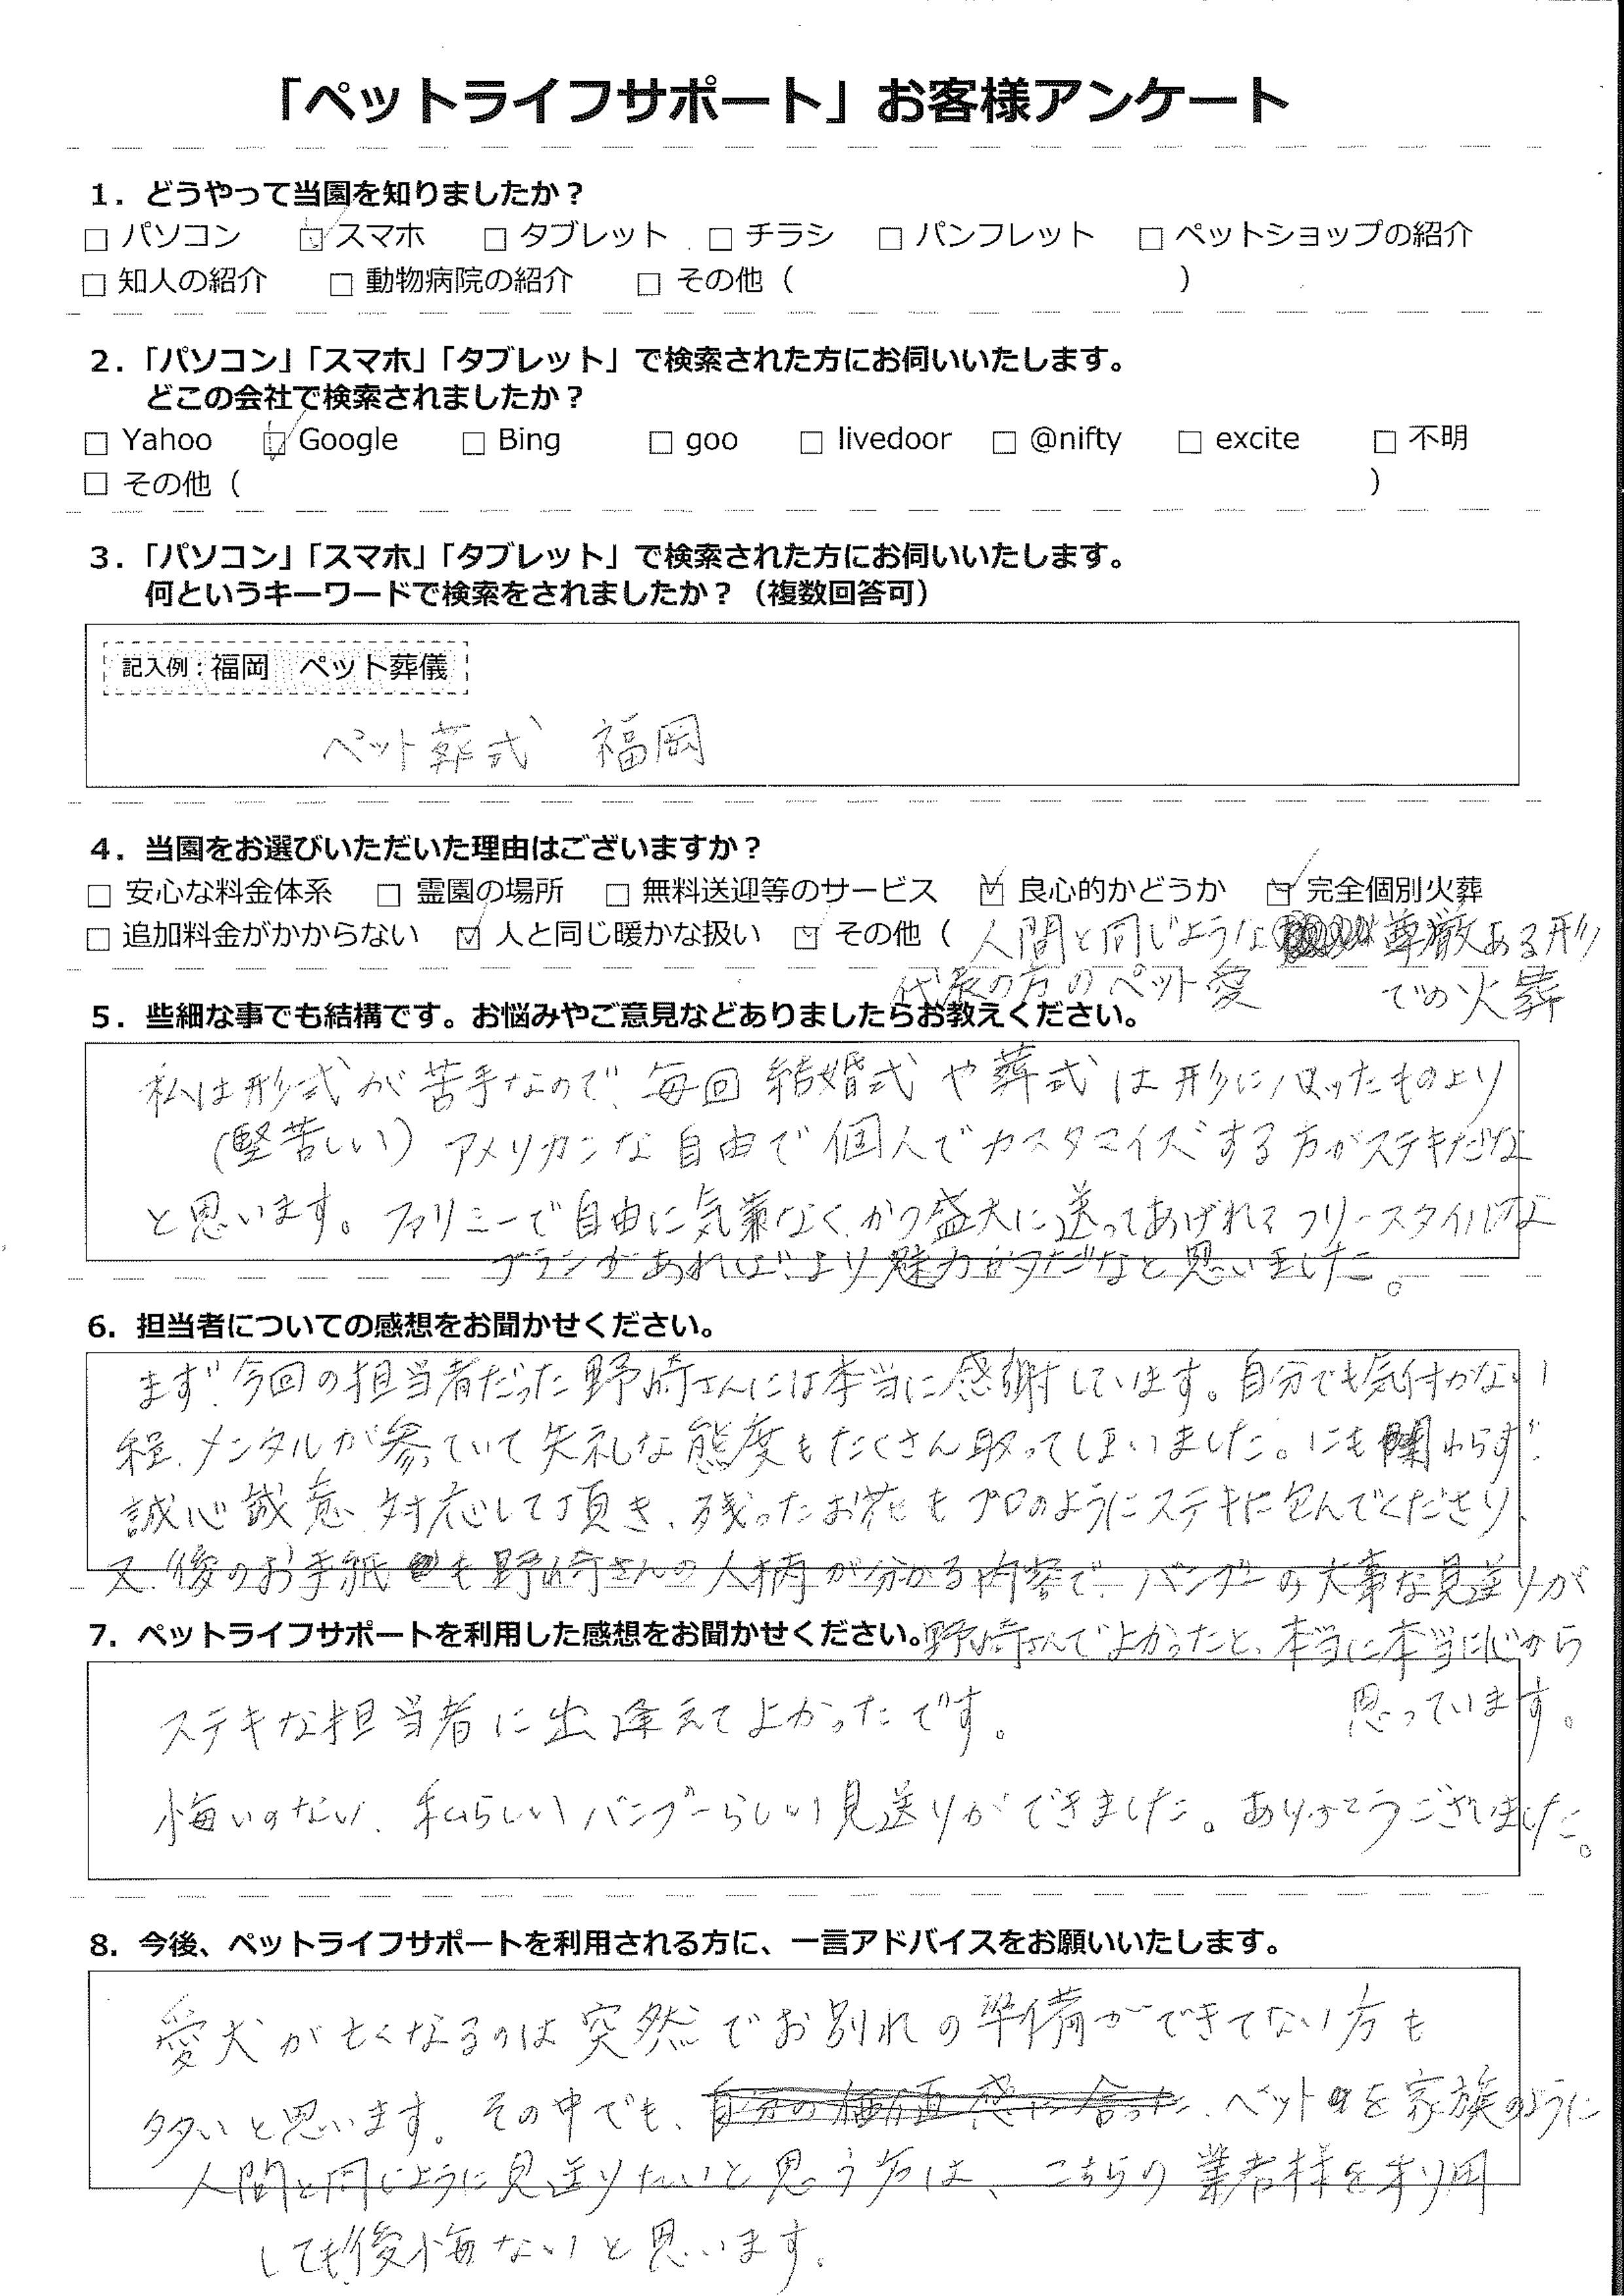 「ペットライフサポート」お客様アンケート
1. どうやって当園を知りましたか？
□ パソコン ☑ スマホ □ タブレット □ チラシ □ パンフレット □ ペットショップの紹介
□ 知人の紹介 □ 動物病院の紹介 □ その他（ ）
2.「パソコン」「スマホ」「タブレット」で検索された方にお伺いいたします。
どこの会社で検索されましたか？
□ Yahoo ☑ Google □ Bing □ goo □ livedoor □ @nifty □ excite □ 不明
□ その他（ ）
3.「パソコン」「スマホ」「タブレット」で検索された方にお伺いいたします。
何というキーワードで検索をされましたか？（複数回答可）
記入例：福岡 ペット葬儀
ペット葬式 福岡
4. 当園をお選びいただいた理由はございますか？
□ 安心な料金体系 □ 霊園の場所 □ 無料送迎等のサービス ☑ 良心的かどうか ☑ 完全個別火葬
□ 追加料金がかからない ☑ 人と同じ暖かな扱い ☑ その他（ 人間と同じような 尊厳ある形
代表の方のペット愛 での火葬
5. 些細な事でも結構です。お悩みやご意見などありましたらお教えください。
私は形式が苦手なので、毎回結婚式や葬式は形にハマったものより
（堅苦しい）アメリカンな自由で個人でカスタマイズする方がステキだな
と思います。ファミリーで自由に気兼なく、かつ盛大に送ってあげれる フリースタイルな
プランがあれば、より魅力的だなと思いました。
6. 担当者についての感想をお聞かせください。
まず、今回の担当者だった野崎さんには本当に感謝しています。自分でも気付かない
程、メンタルが参っていて失礼な態度もたくさん取ってしまいました。にも関わらず、
誠心誠意 対応して頂き、残ったお花もプロのようにステキに包んでくださり、
又、後のお手紙も野崎さんの人柄が分かる内容で、バンブーの大事な見送りが
7. ペットライフサポートを利用した感想をお聞かせください。野崎さんでよかったと、本当に本当に心から
思っています。
ステキな担当者に出逢えてよかったです。
悔いのない、私らしいバンブーらしい見送りができました。ありがとうございました。
8. 今後、ペットライフサポートを利用される方に、一言アドバイスをお願いいたします。
愛犬が亡くなるのは突然でお別れの準備ができてない方も
多いと思います。その中でも、自分の価値感に合った、ペットを家族のように
人間と同じように見送りたいと思う方は、こちらの業者様を利用
しても後悔ないと思います。